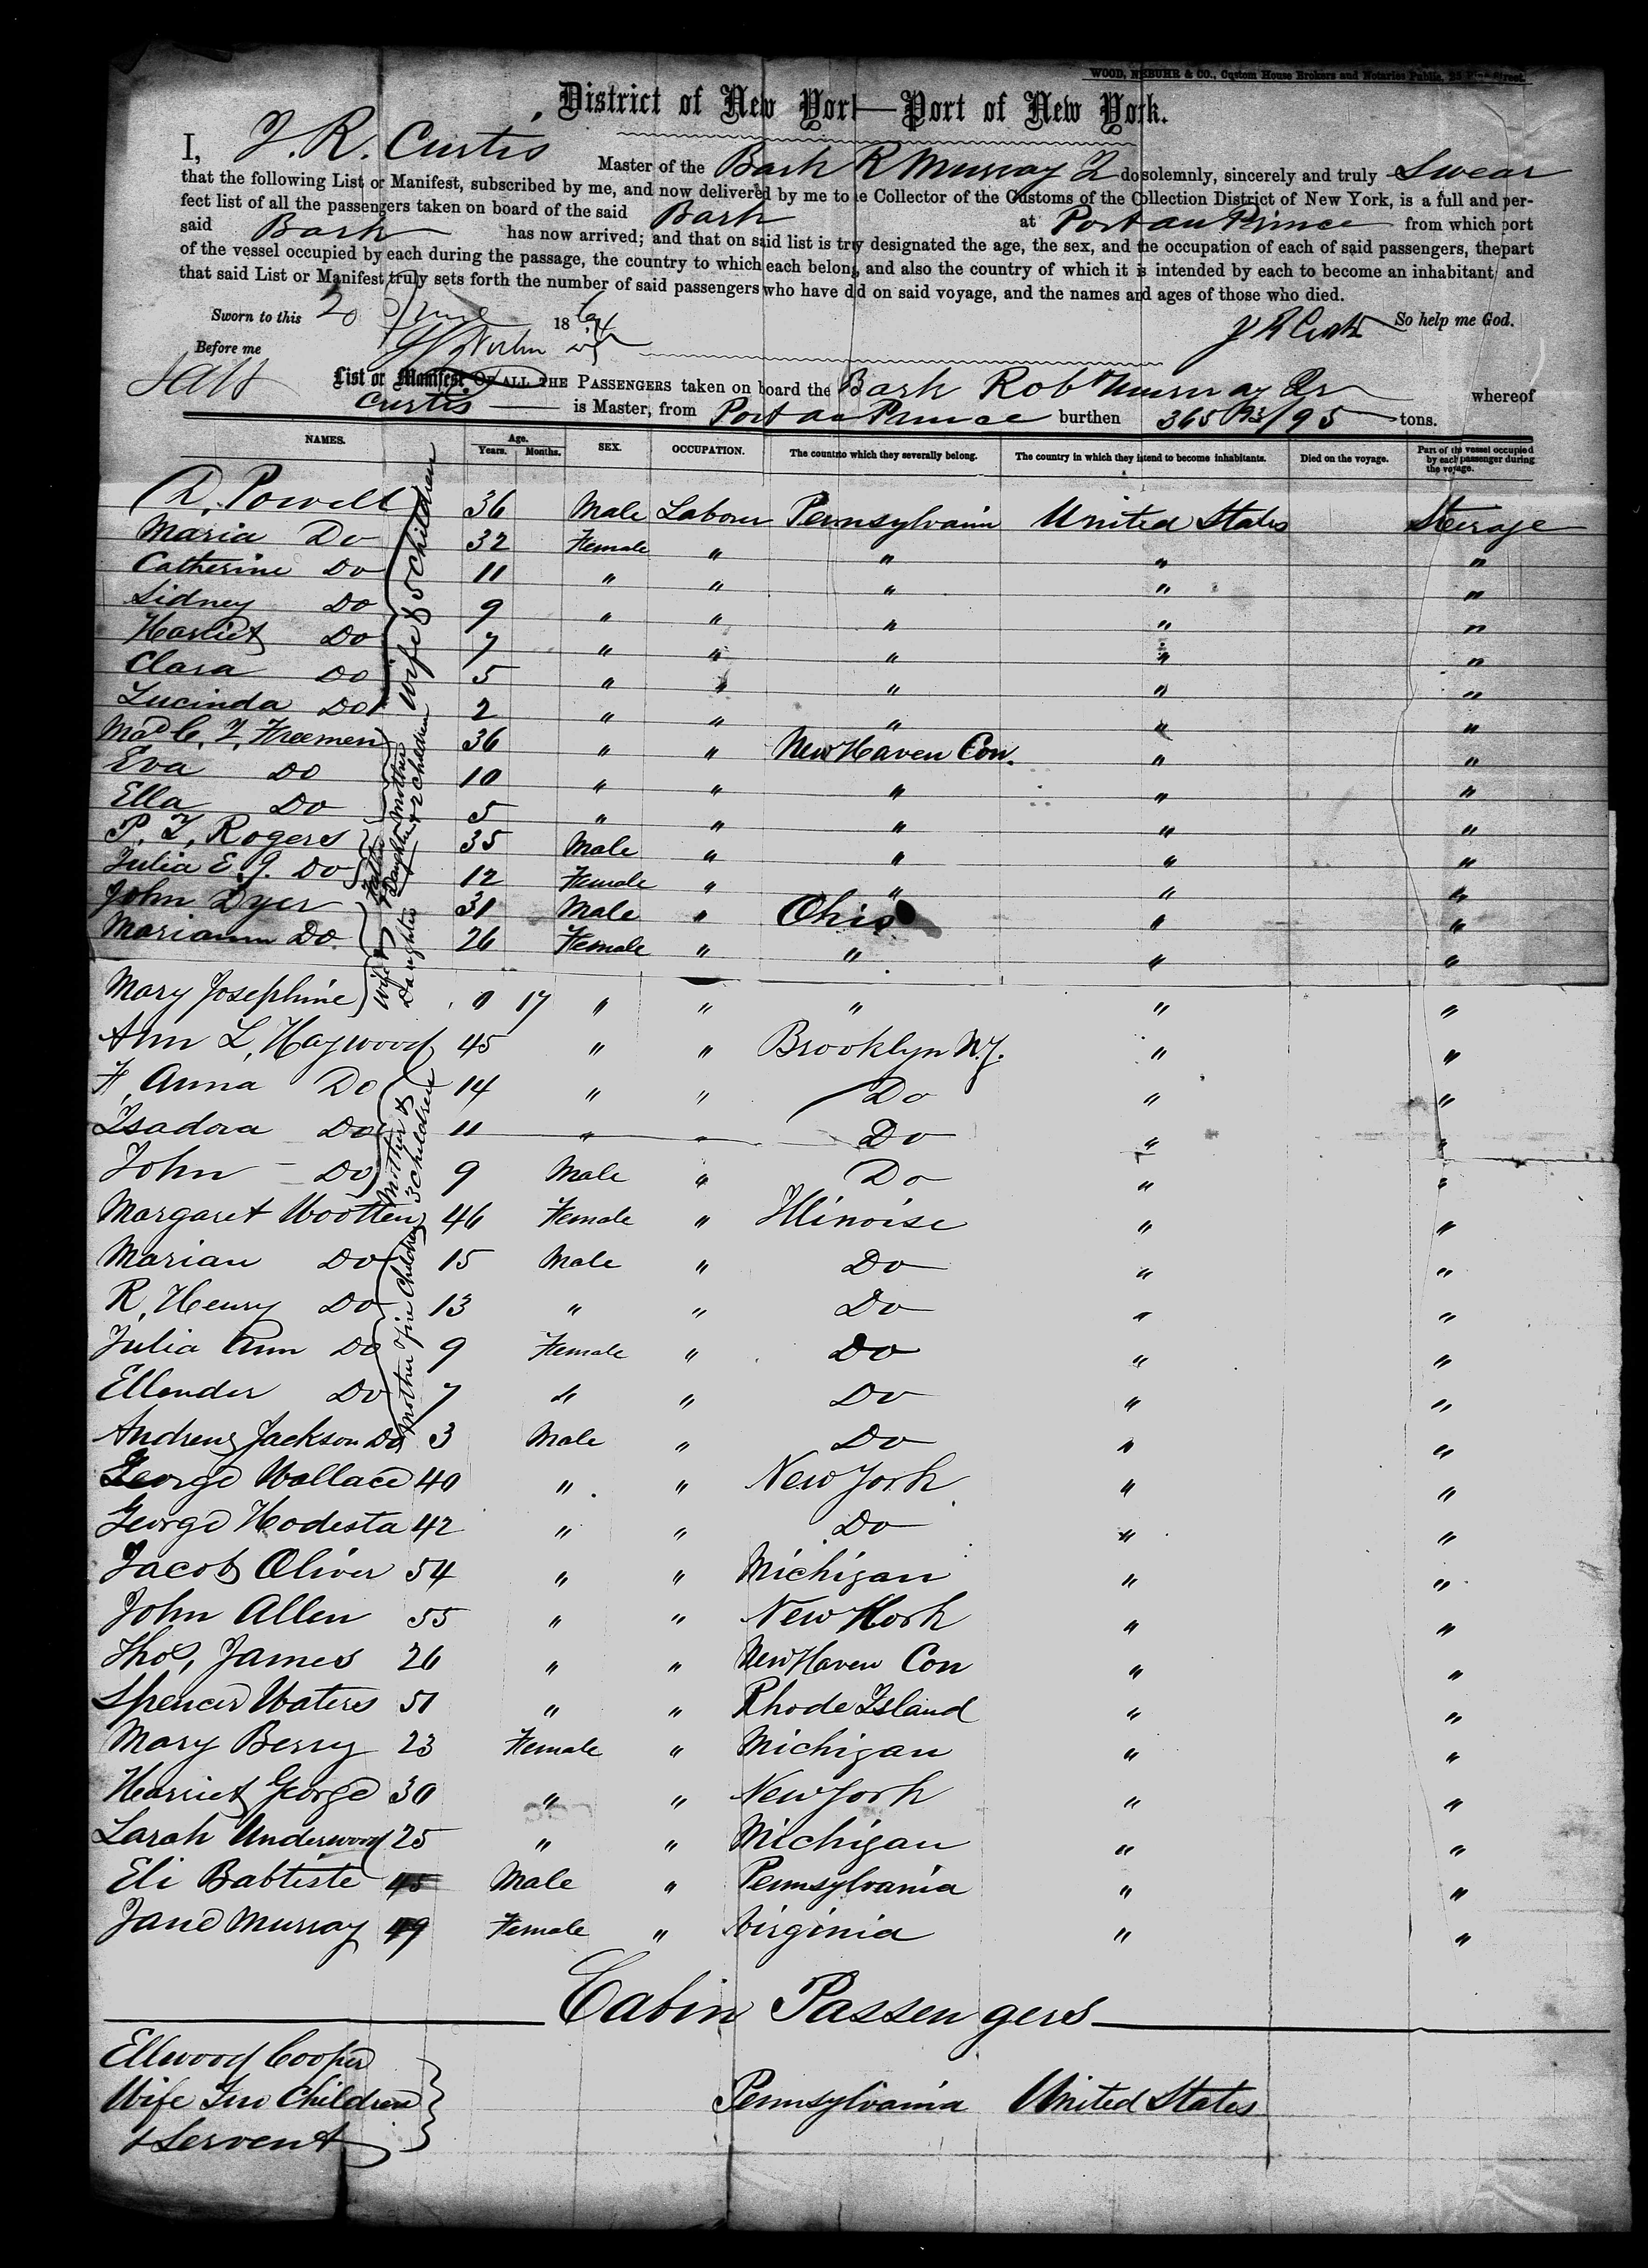 WOOD, NIEBUHR & CO., Custom House Brokers and Notaries Public, 25 Pine Street.
District of New York—Port of New York.
I, J. R. Curtis Master of the Bark R Murray Jr do solemnly, sincerely and truly Swear
that the following List or Manifest, subscribed by me, and now delivered by me to the Collector of the Customs of the Collection District of New York, is a full and per-
fect list of all the passengers taken on board of the said Bark at Port au Prince from which port
said Bark has now arrived; and that on said list is truly designated the age, the sex, and the occupation of each of said passengers, the part
of the vessel occupied by each during the passage, the country to which each belong, and also the country of which it is intended by each to become an inhabitant; and
that said List or Manifest truly sets forth the number of said passengers who have died on said voyage, and the names and ages of those who died.
Sworn to this 20 June 18 64 J R Curtis So help me God.
Before me
List or Manifest OF ALL THE PASSENGERS taken on board the Bark Robt Murray Jr whereof
Curtis is Master, from Port au Prince burthen 365 /95 tons.
NAMES. Age. Years. Months. SEX. OCCUPATION. The country to which they severally belong. The country in which they intend to become inhabitants. Died on the voyage. Part of the vessel occupied by each passenger during the voyage.
D. Powell 36 Male Labour Pennsylvania United States Steerage
Maria Do 32 Female " " " "
Catherine Do 11 " " " " "
Sidney Do 9 " " " " "
Harriet Do 7 " " " " "
Clara Do 5 " " " " "
Lucinda Do 2 " " " " "
Wife & 5 Children
Mad C. T. Freemen 36 " " New Haven Con. " "
Eva Do 10 " " " " "
Ella Do 5 " " " " "
Mother & 2 Children
P. T. Rogers 35 Male " " " "
Julia E. J. Do 12 Female " " " "
Father & Daughter
John Dyer 31 Male " Ohio " "
Mariann Do 26 Female " " " "
Mary Josephine 0 17 " " " " "
Wife & Daughter
Ann L. Haywood 45 " " Brooklyn N.Y. " "
H. Anna Do 14 " " Do " "
Isadora Do 11 " " Do " "
John Do 9 Male " Do " "
Mother & 3 Children
Margaret Wootten 46 Female " Illinoise " "
Marian Do 15 Male " Do " "
R. Henry Do 13 " " Do " "
Julia Ann Do 9 Female " Do " "
Ellender Do 7 " " Do " "
Andrew Jackson Do 3 Male " Do " "
Mother five Children
George Wallace 40 " " New York " "
George Hodesta 42 " " Do " "
Jacob Oliver 54 " " Michigan " "
John Allen 55 " " New York " "
Thos, James 26 " " New Haven Con " "
Spencer Waters 51 " " Rhode Island " "
Mary Berry 23 Female " Michigan " "
Harriet George 30 " " New York " "
Sarah Underwood 25 " " Michigan " "
Eli Babtiste 45 Male " Pennsylvania " "
Jane Murray 49 Female " Virginia " "
Cabin Passengers
Ellwood Cooper
Wife Two Children Pennsylvania United States
& Servent